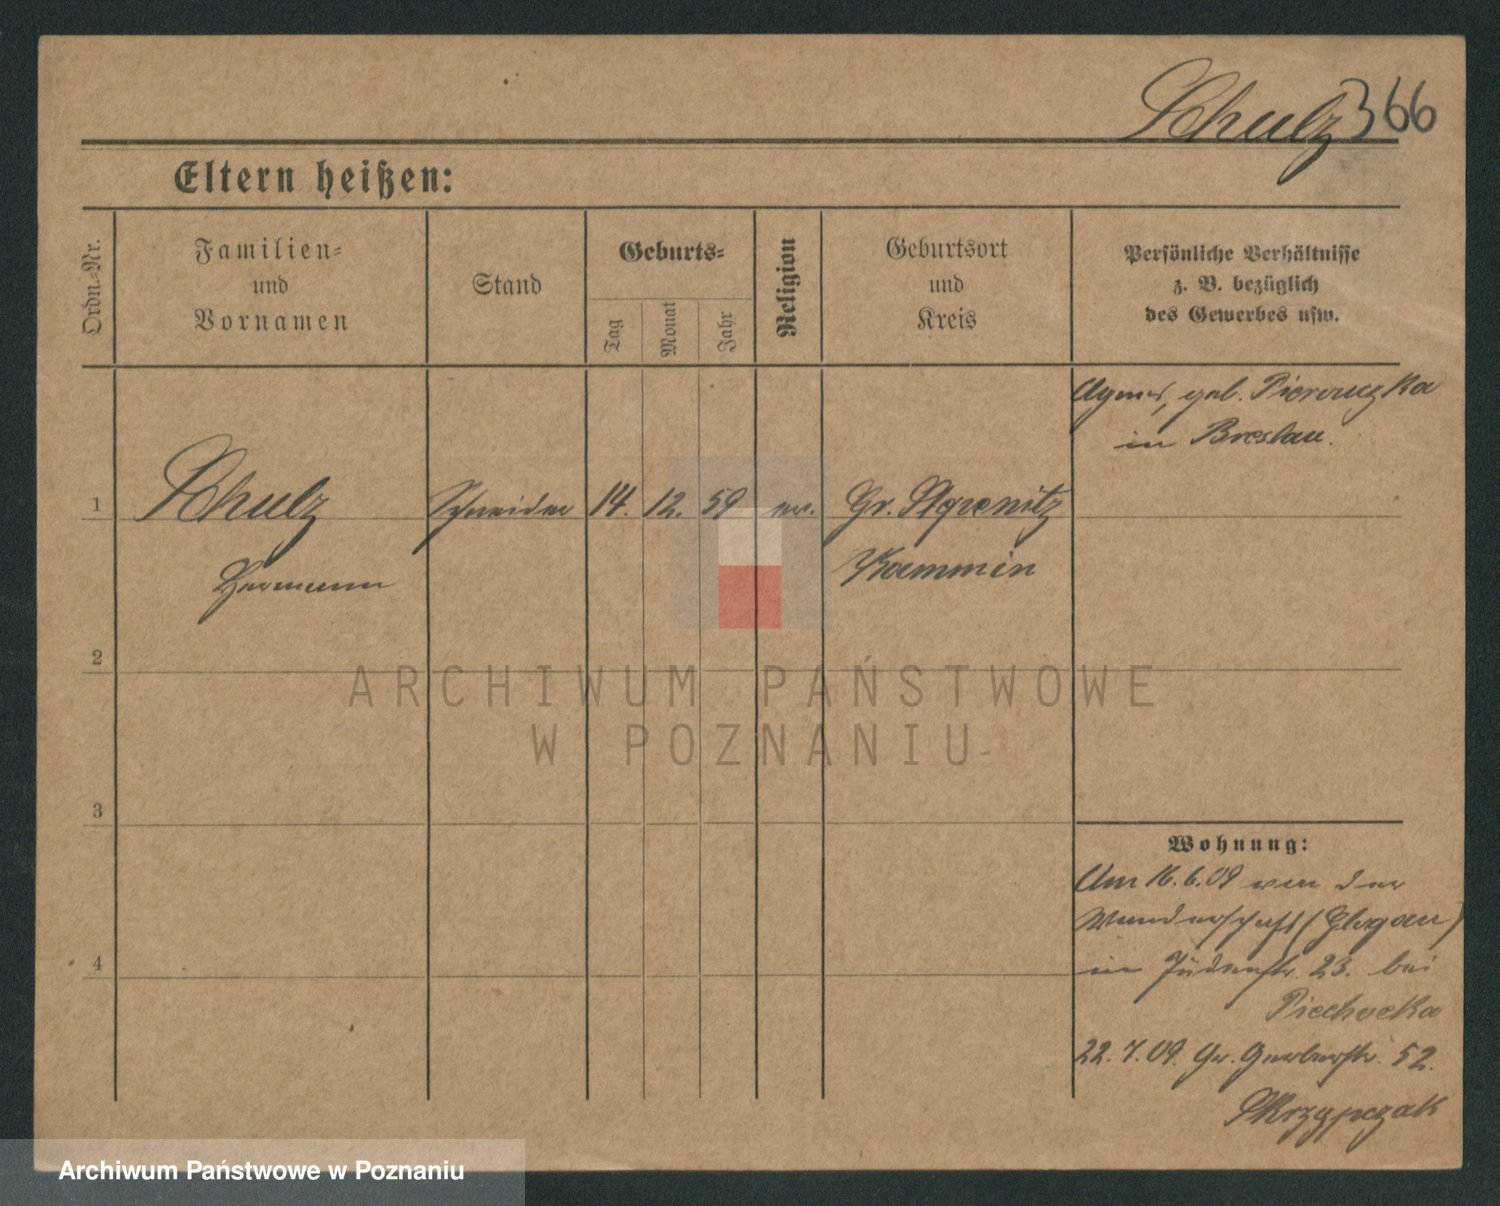 Schulz 366
Eltern heißen:
Ordn.-Nr.
Familien-
und
Vornamen
Stand
Geburts-
Tag
Monat
Jahr
Religion
Geburtsort
und
Kreis
Persönliche Verhältnisse
z. B. bezüglich
des Gewerbes usw.
Agnes, geb. Pierouczka
in Breslau.
1 Schulz Schneider 14. 12. 59 ev. Gr.
Hermann Kammin
2
3
4
Wohnung:
Am 16.6.09 von der
Wanderschaft (Glogau)
in Judenstr. 23. bei
Piechocka
22.7.09. Gr. Gerberstr. 52.
Skrzypczak
ARCHIWUM PAŃSTWOWE
W POZNANIU
Archiwum Państwowe w Poznaniu